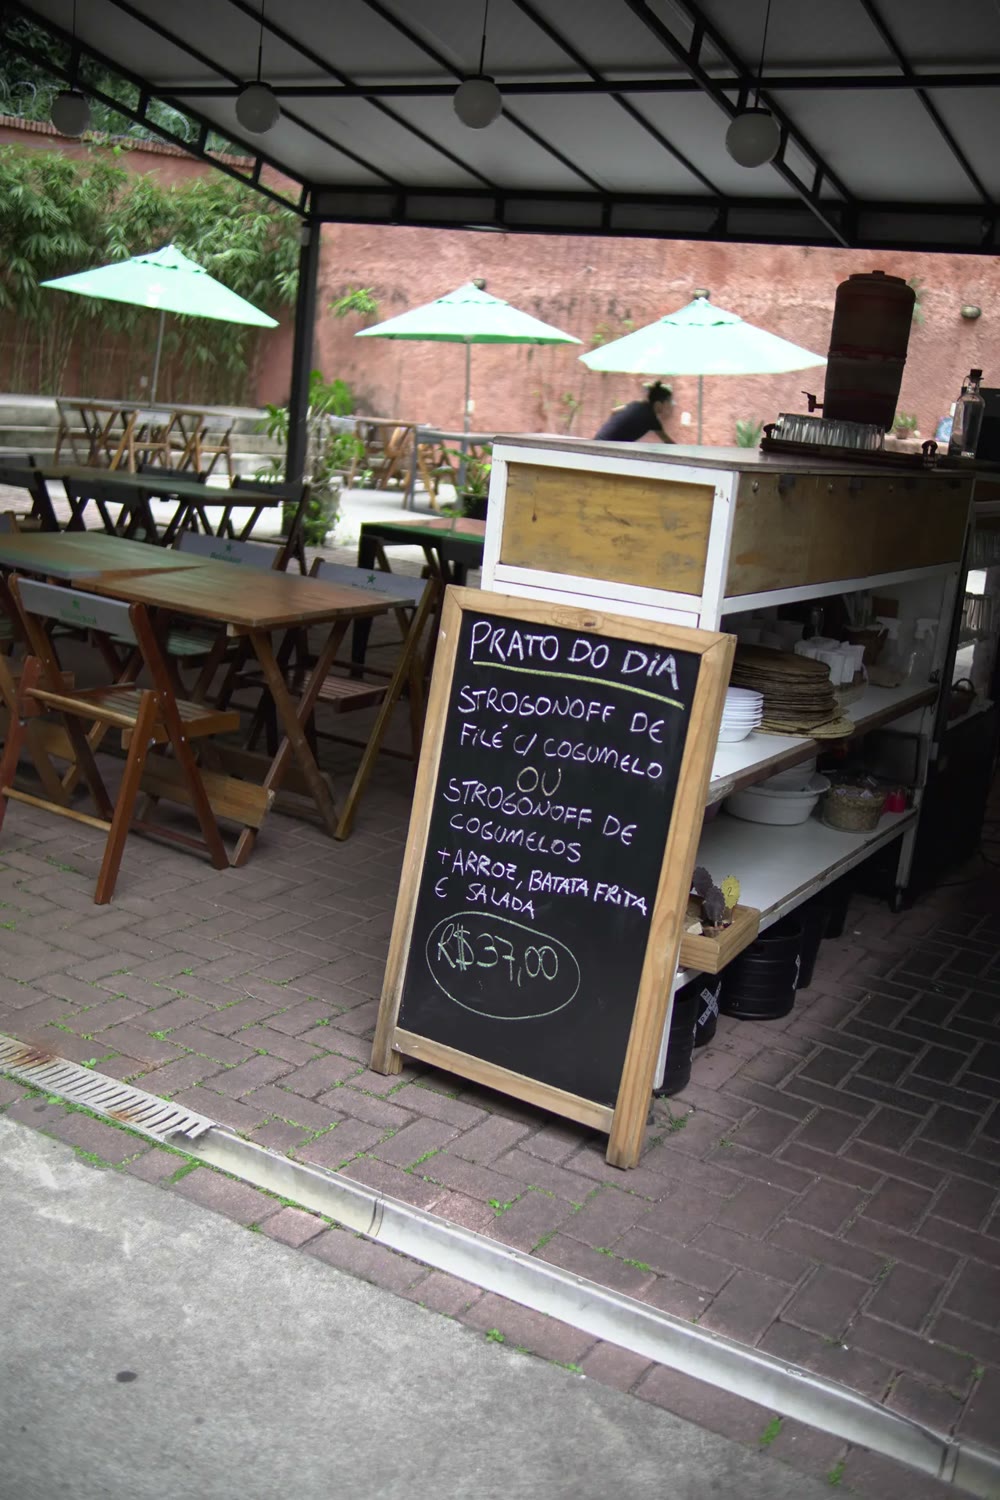 PRATO DO DIA
STROGONOFF DE
FILÉ C/ COGUMELO
OU
STROGONOFF DE
COGUMELOS
+ARROZ, BATATA FRITA
E SALADA
R$37,00